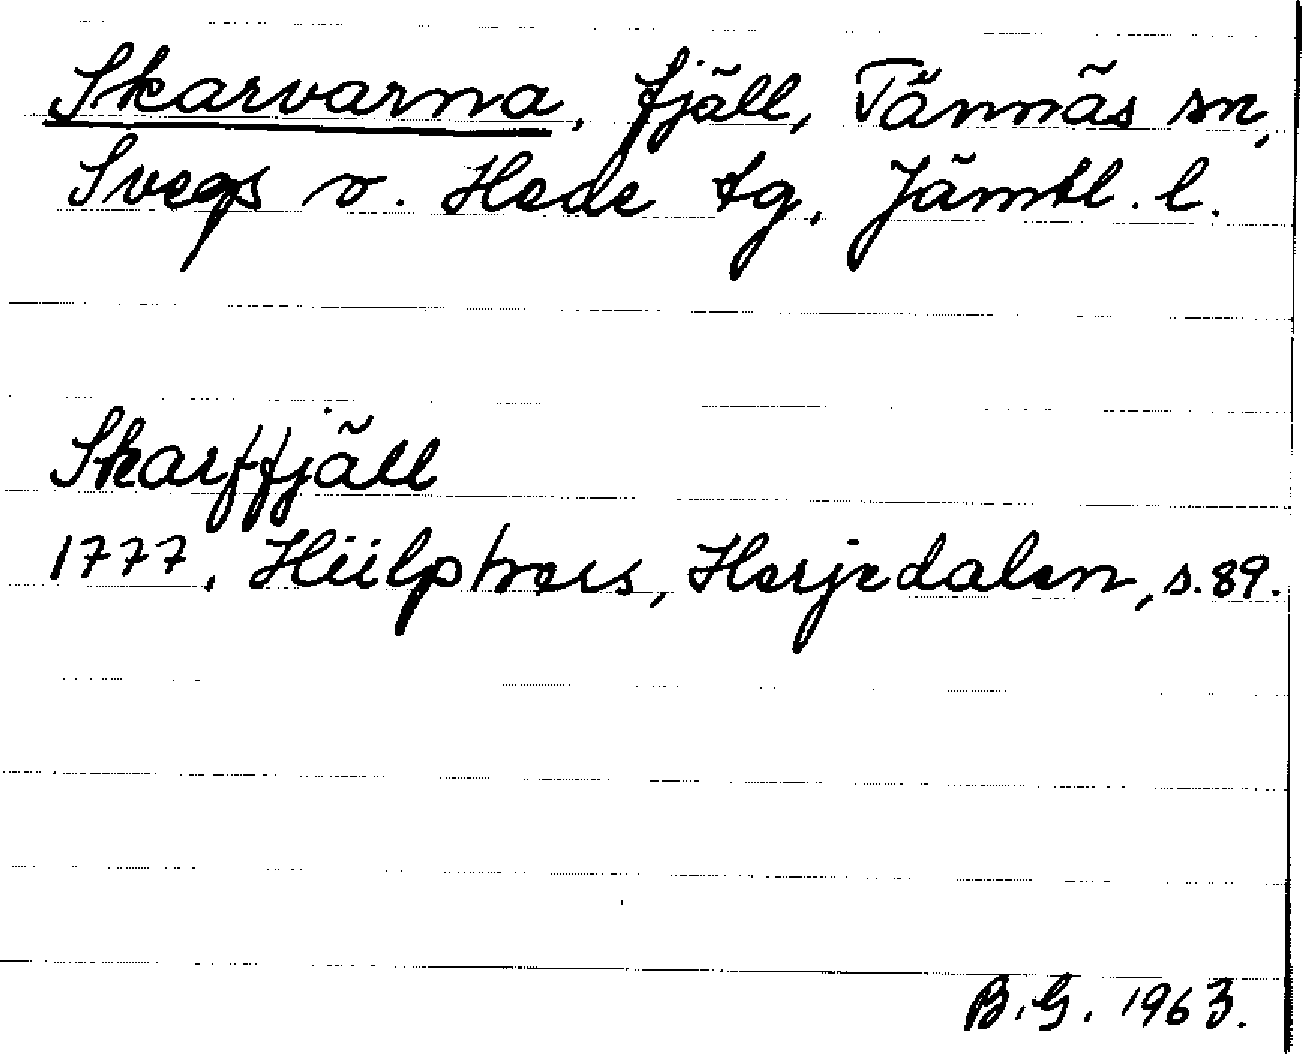 Skarvarna, fjäll, Tännäs sn,
Svegs o. Hede tg, Jämtl. l.
Skarffjäll
1777, Hülphers, Herjedalen, s. 89.
B.G. 1963.